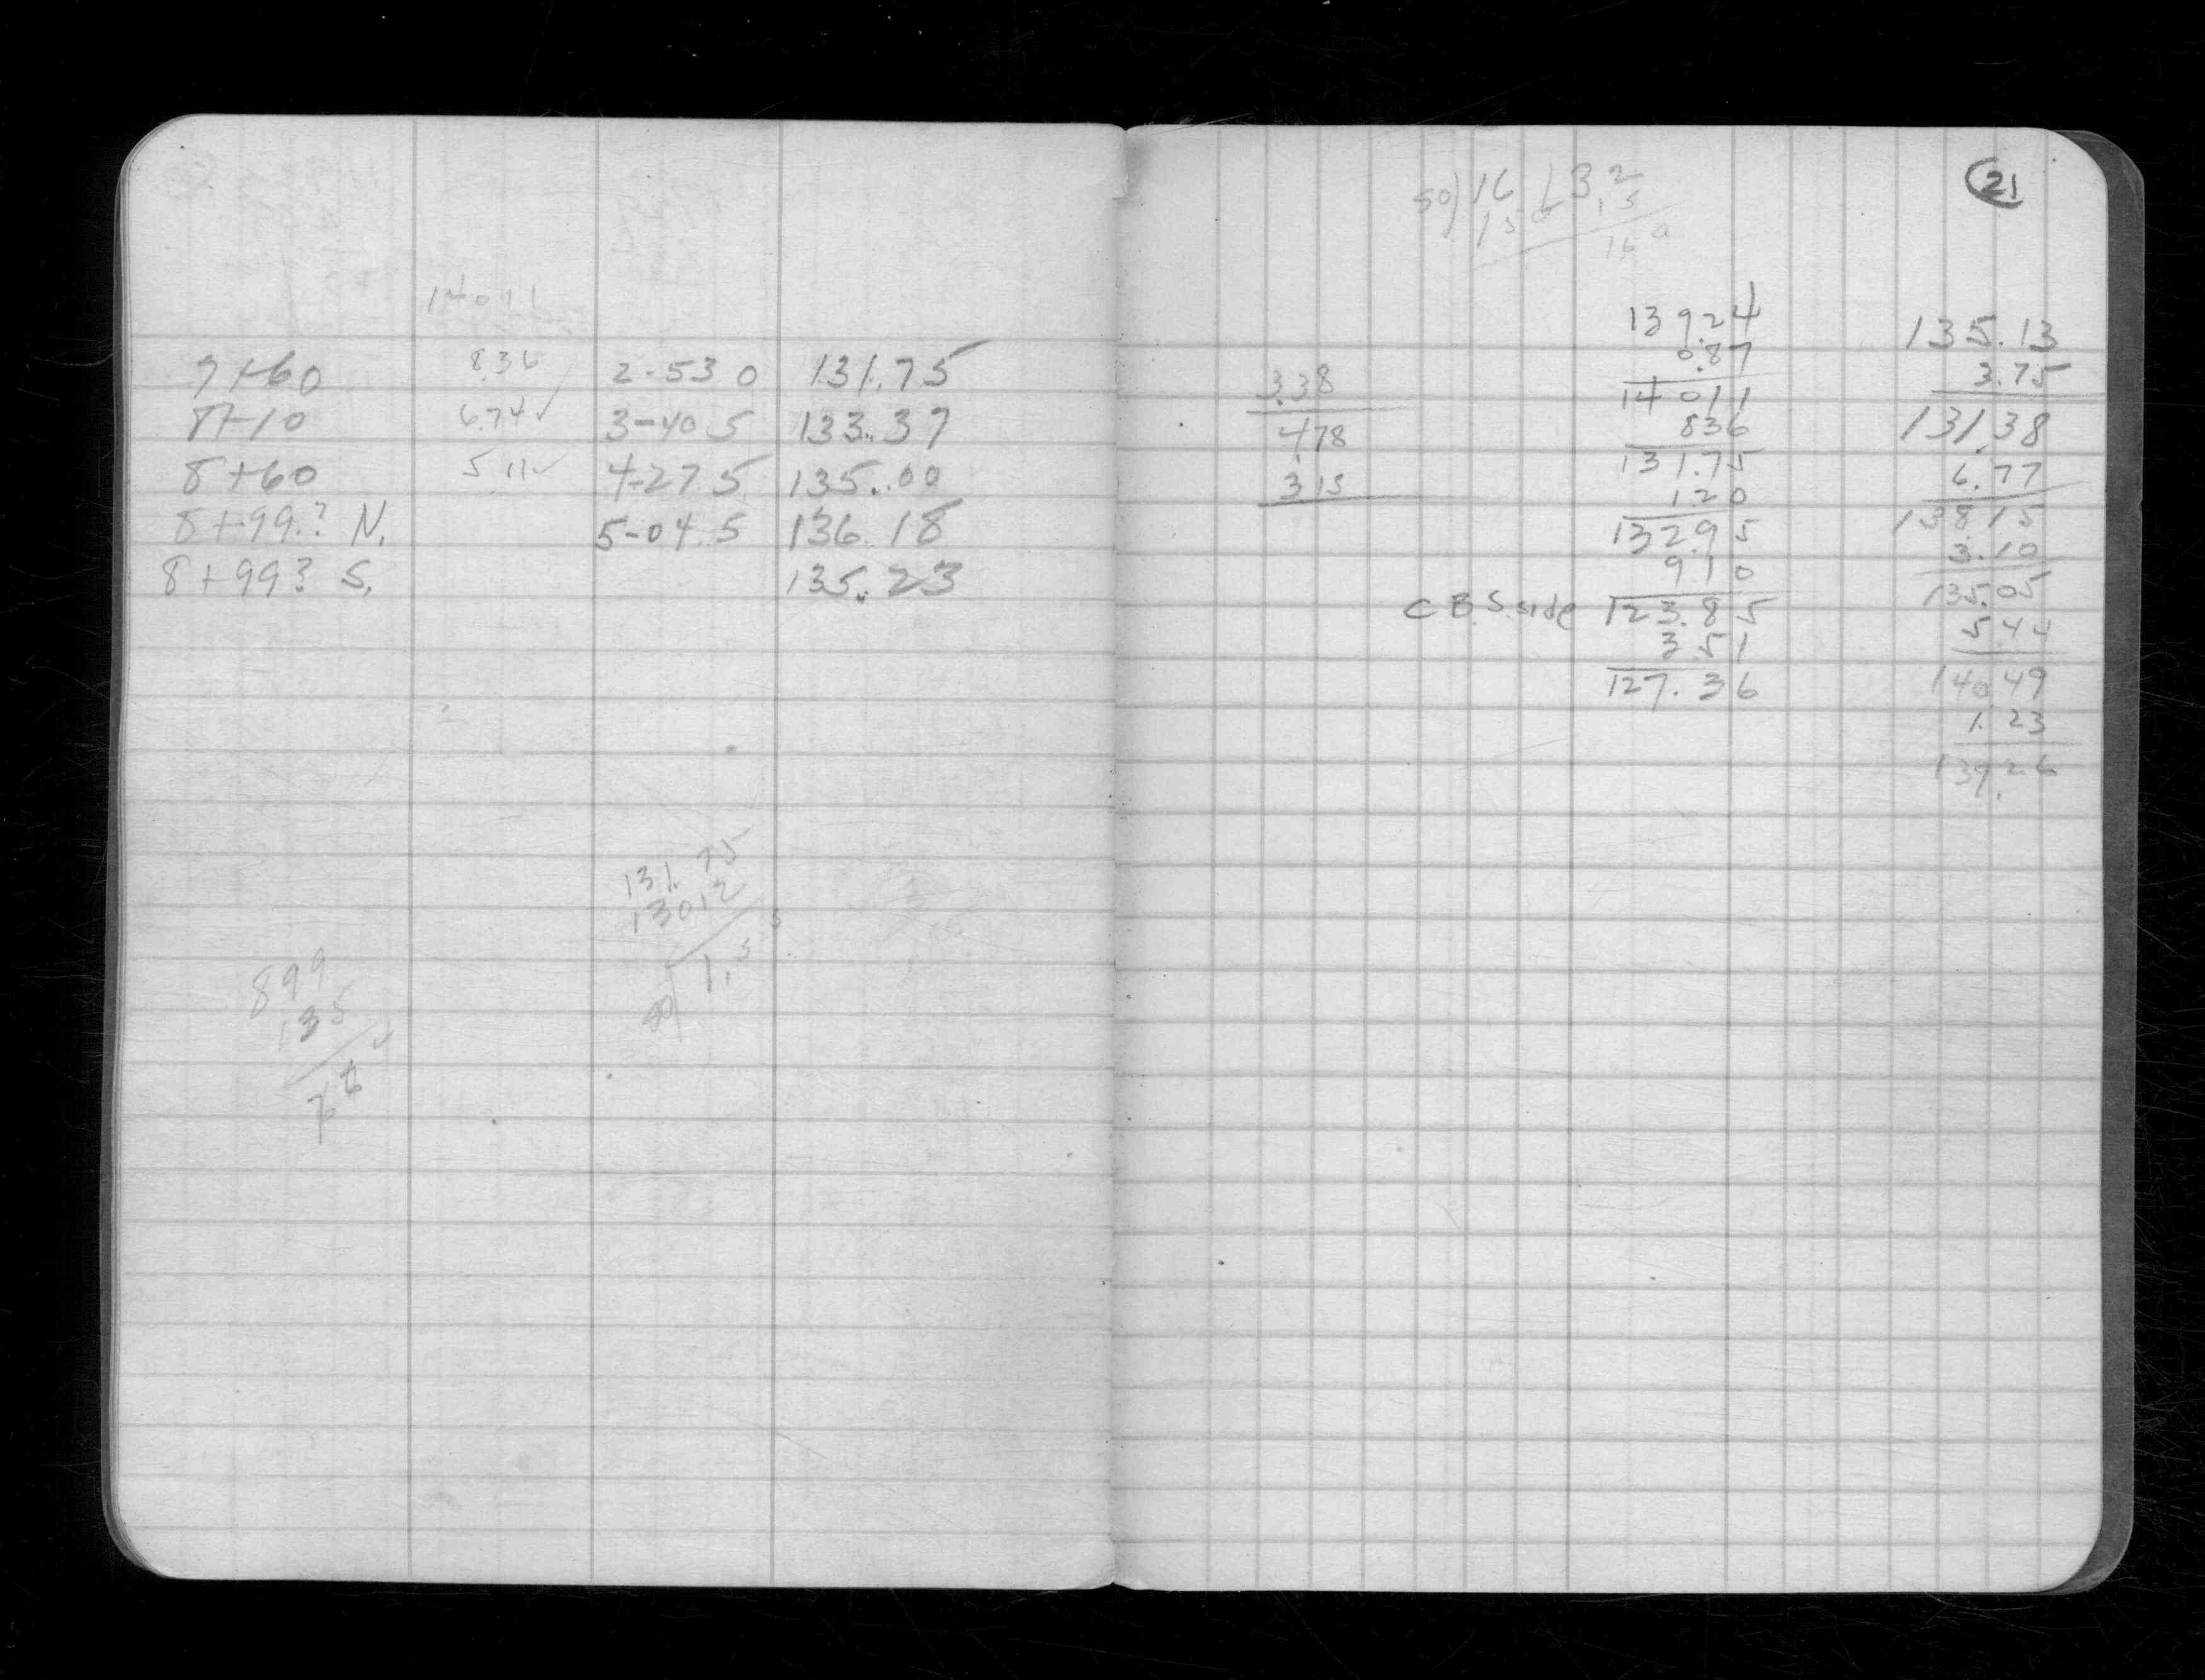 14011
7+60 8.36 2-530 131.75
8+10 6.74✓ 3-40 5 133.37
8+60 5 11✓ 4-27 5 135.00
8+99.? N. 5-04.5 136.18
8+99? S. 135.23
131.75
13012
899
135
21
50) 16
3.38
478
315
139.24
0.87
14011
836
131.75
120
132.95
910
C B. S. side 123.85
3 51
127.36
135.13
3.75
131.38
6.77
138.15
3.10
135.05
5.44
140.49
1.23
139.26